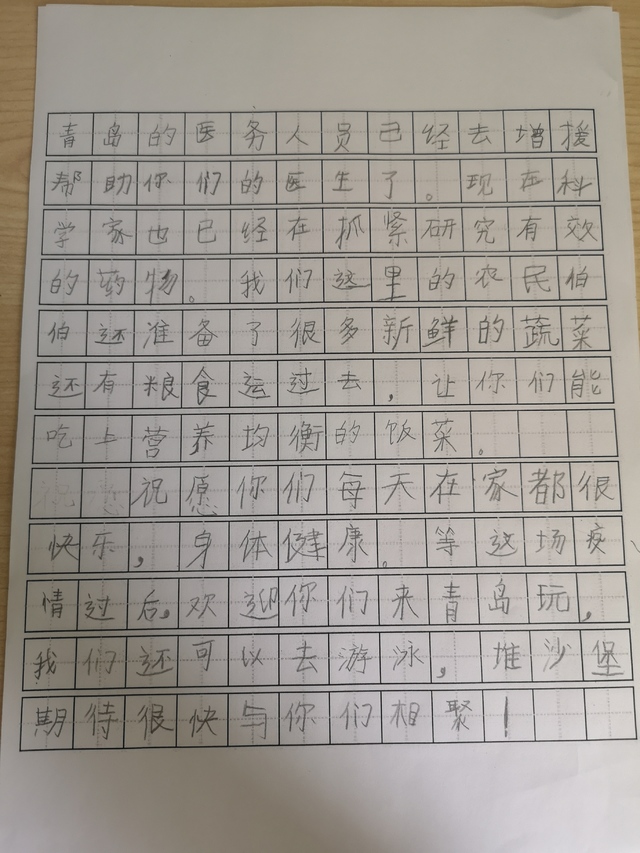 青岛的医务人员已经去增援
帮助你们的医生了。现在科
学家也已经在抓紧研究有效
的药物。我们这里的农民伯
伯还准备了很多新鲜的蔬菜
还有粮食运过去，让你们能
吃上营养均衡的饭菜。
祝愿你们每天在家都很
快乐，身体健康。等这场疫
情过后，欢迎你们来青岛玩，
我们还可以去游泳，堆沙堡
期待很快与你们相聚！